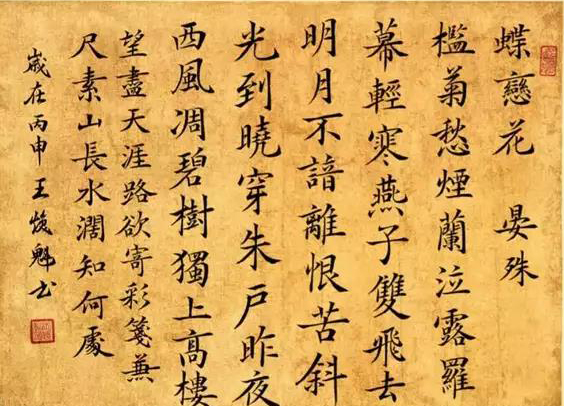 蝶戀花 晏殊
檻菊愁煙蘭泣露羅
幕輕寒燕子雙飛去
明月不諳離恨苦斜
光到曉穿朱戶昨夜
西風凋碧樹獨上高樓
望盡天涯路欲寄彩箋兼
尺素山長水闊知何處
歲在丙申王魁书